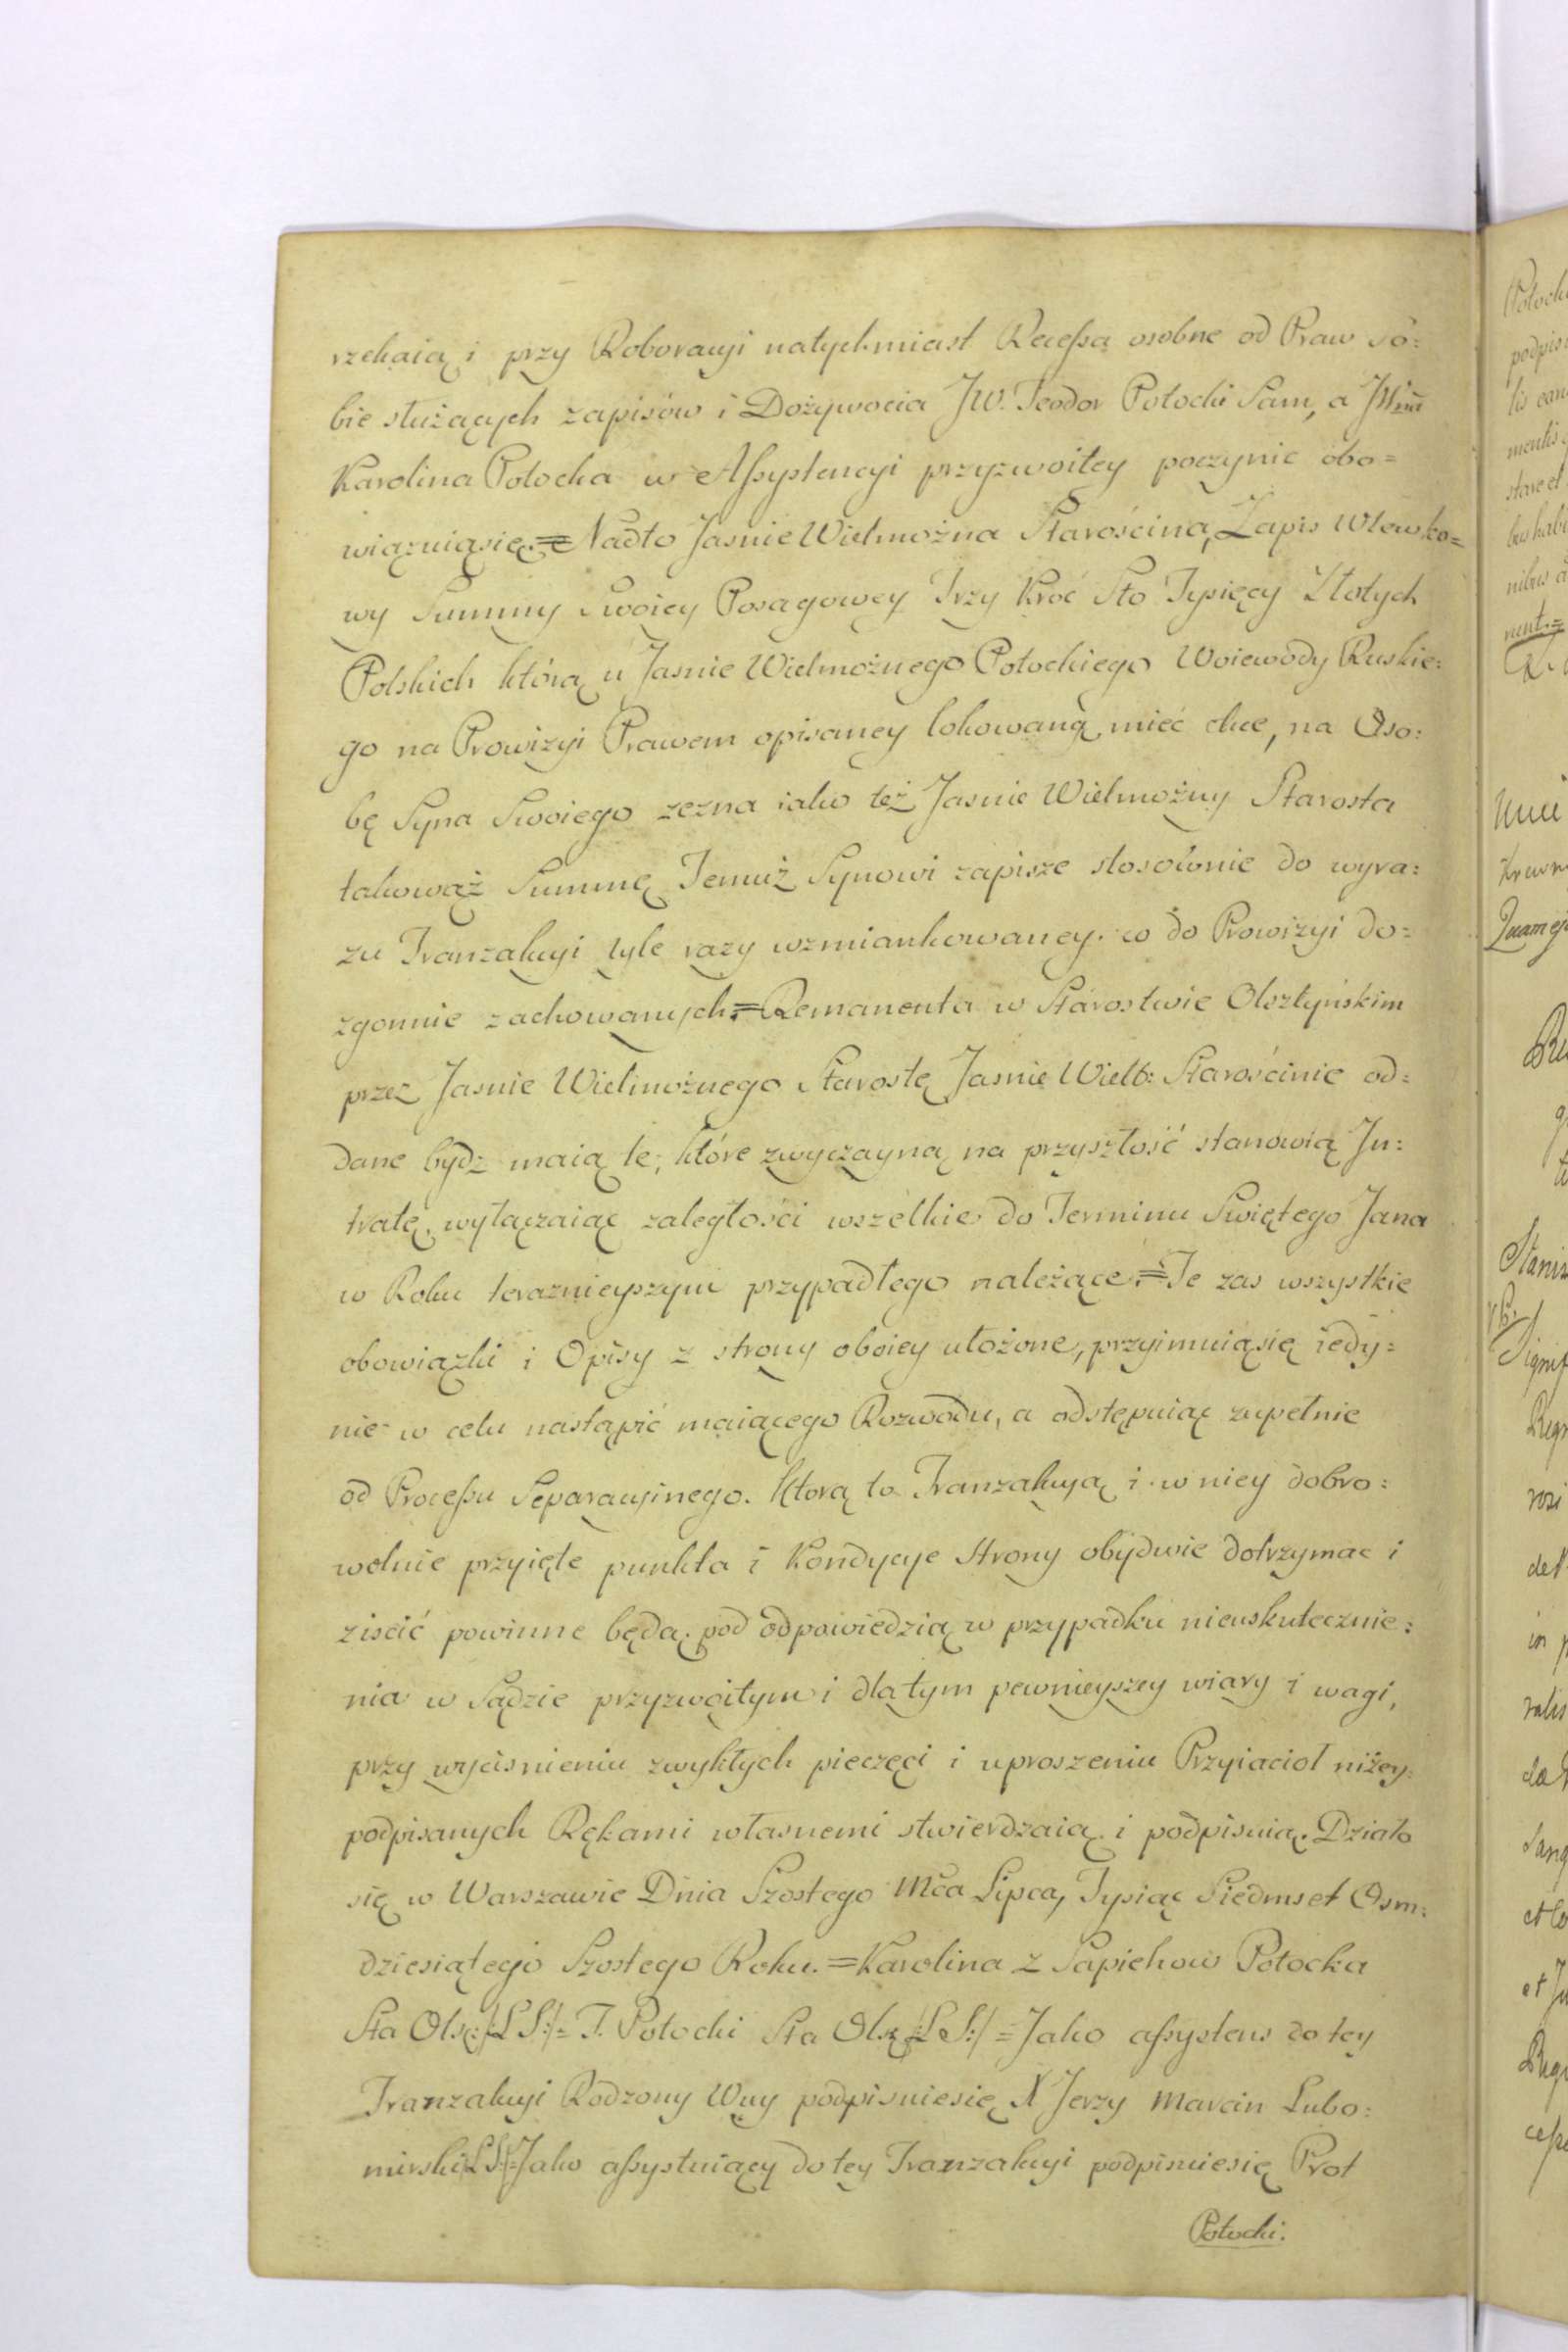 rzekaią i przy Roboracyi natychmiast Recessa osobne od Praw so:
bie służących zapisów i Dożywocia JW. Teodor Potocki Sam, a JWna
Karolina Potocka w Assystencyi przyzwoitey poczynic obo=
wiązuiąsię.= Nadto Jasnie Wielmożna Starościna, Zapis Wlewko=
wy Summy Swoiey Posagowey Trzy Kroć Sto Tysięcy Złotych
Polskich którą u Jasnie Wielmożnego Potockiego Woiewody Ruskie:
go na Prowizyi Prawem opisaney lokowaną mieć chce, na Oso:
bę Syna Swoiego zezna iako też Jasnie Wielmożny Starosta
takowąż Summę Temuż Synowi zapisze stosownie do wyra:
zu Tranzakcyi tyle razy wzmiankowaney. w do Prowizyi do=
zgonnie zachowanych.= Remanenta w Starostwie Olsztyńskim
przez Jasnie Wielmożnego Starostę Jasnie Wielb: Starościnie od=
dane bydz maią te, które zwyczayną na przyszłość stanowią In:
tratę, wyłączaiąc zaległości wszelkie do Terminu Swiętego Jana
w Roku teraznieyszym przypadłego należące.= Te zas wszystkie
obowiązki i Opisy z strony oboiey ułożone, przyimuiąsię iedy=
nie w celu nastąpić maiącego Rozwodu, a odstępuiąc zupełnie
od Processu Separacyinego. Którą to Tranzakcyą i w niey dobro:
wolnie przyięte punkta i Kondycye Strony obydwie dotrzymac i
ziscić powinne będą, pod odpowiedzią w przypadku nieuskutecznie:
nia w Sądzie przyzwoitym i dla tym pewnieyszey wiary i wagi,
przy wyciśnieniu zwykłych pieczęci i uproszeniu Przyiacioł niżey
podpisanych Rękami własnemi stwierdzaią i podpisuią. Działo
się w Warszawie Dnia Szostego Mca Lipca, Tysiąc Siedmset Osm:
dziesiątego Szostego Roku.= Karolina z Sapiehow Potocka
Sta Olsz: /:L S:/= T. Potocki Sta Olsz /:L S:/ = Jako assystens do tey
Tranzakcyi Rodzony Wuy podpisuiesię X Jerzy Marcin Lubo:
mirski /:L S:/= Jako assystuiący do tey Tranzakcyi podpisuiesię Prot
Potocki.